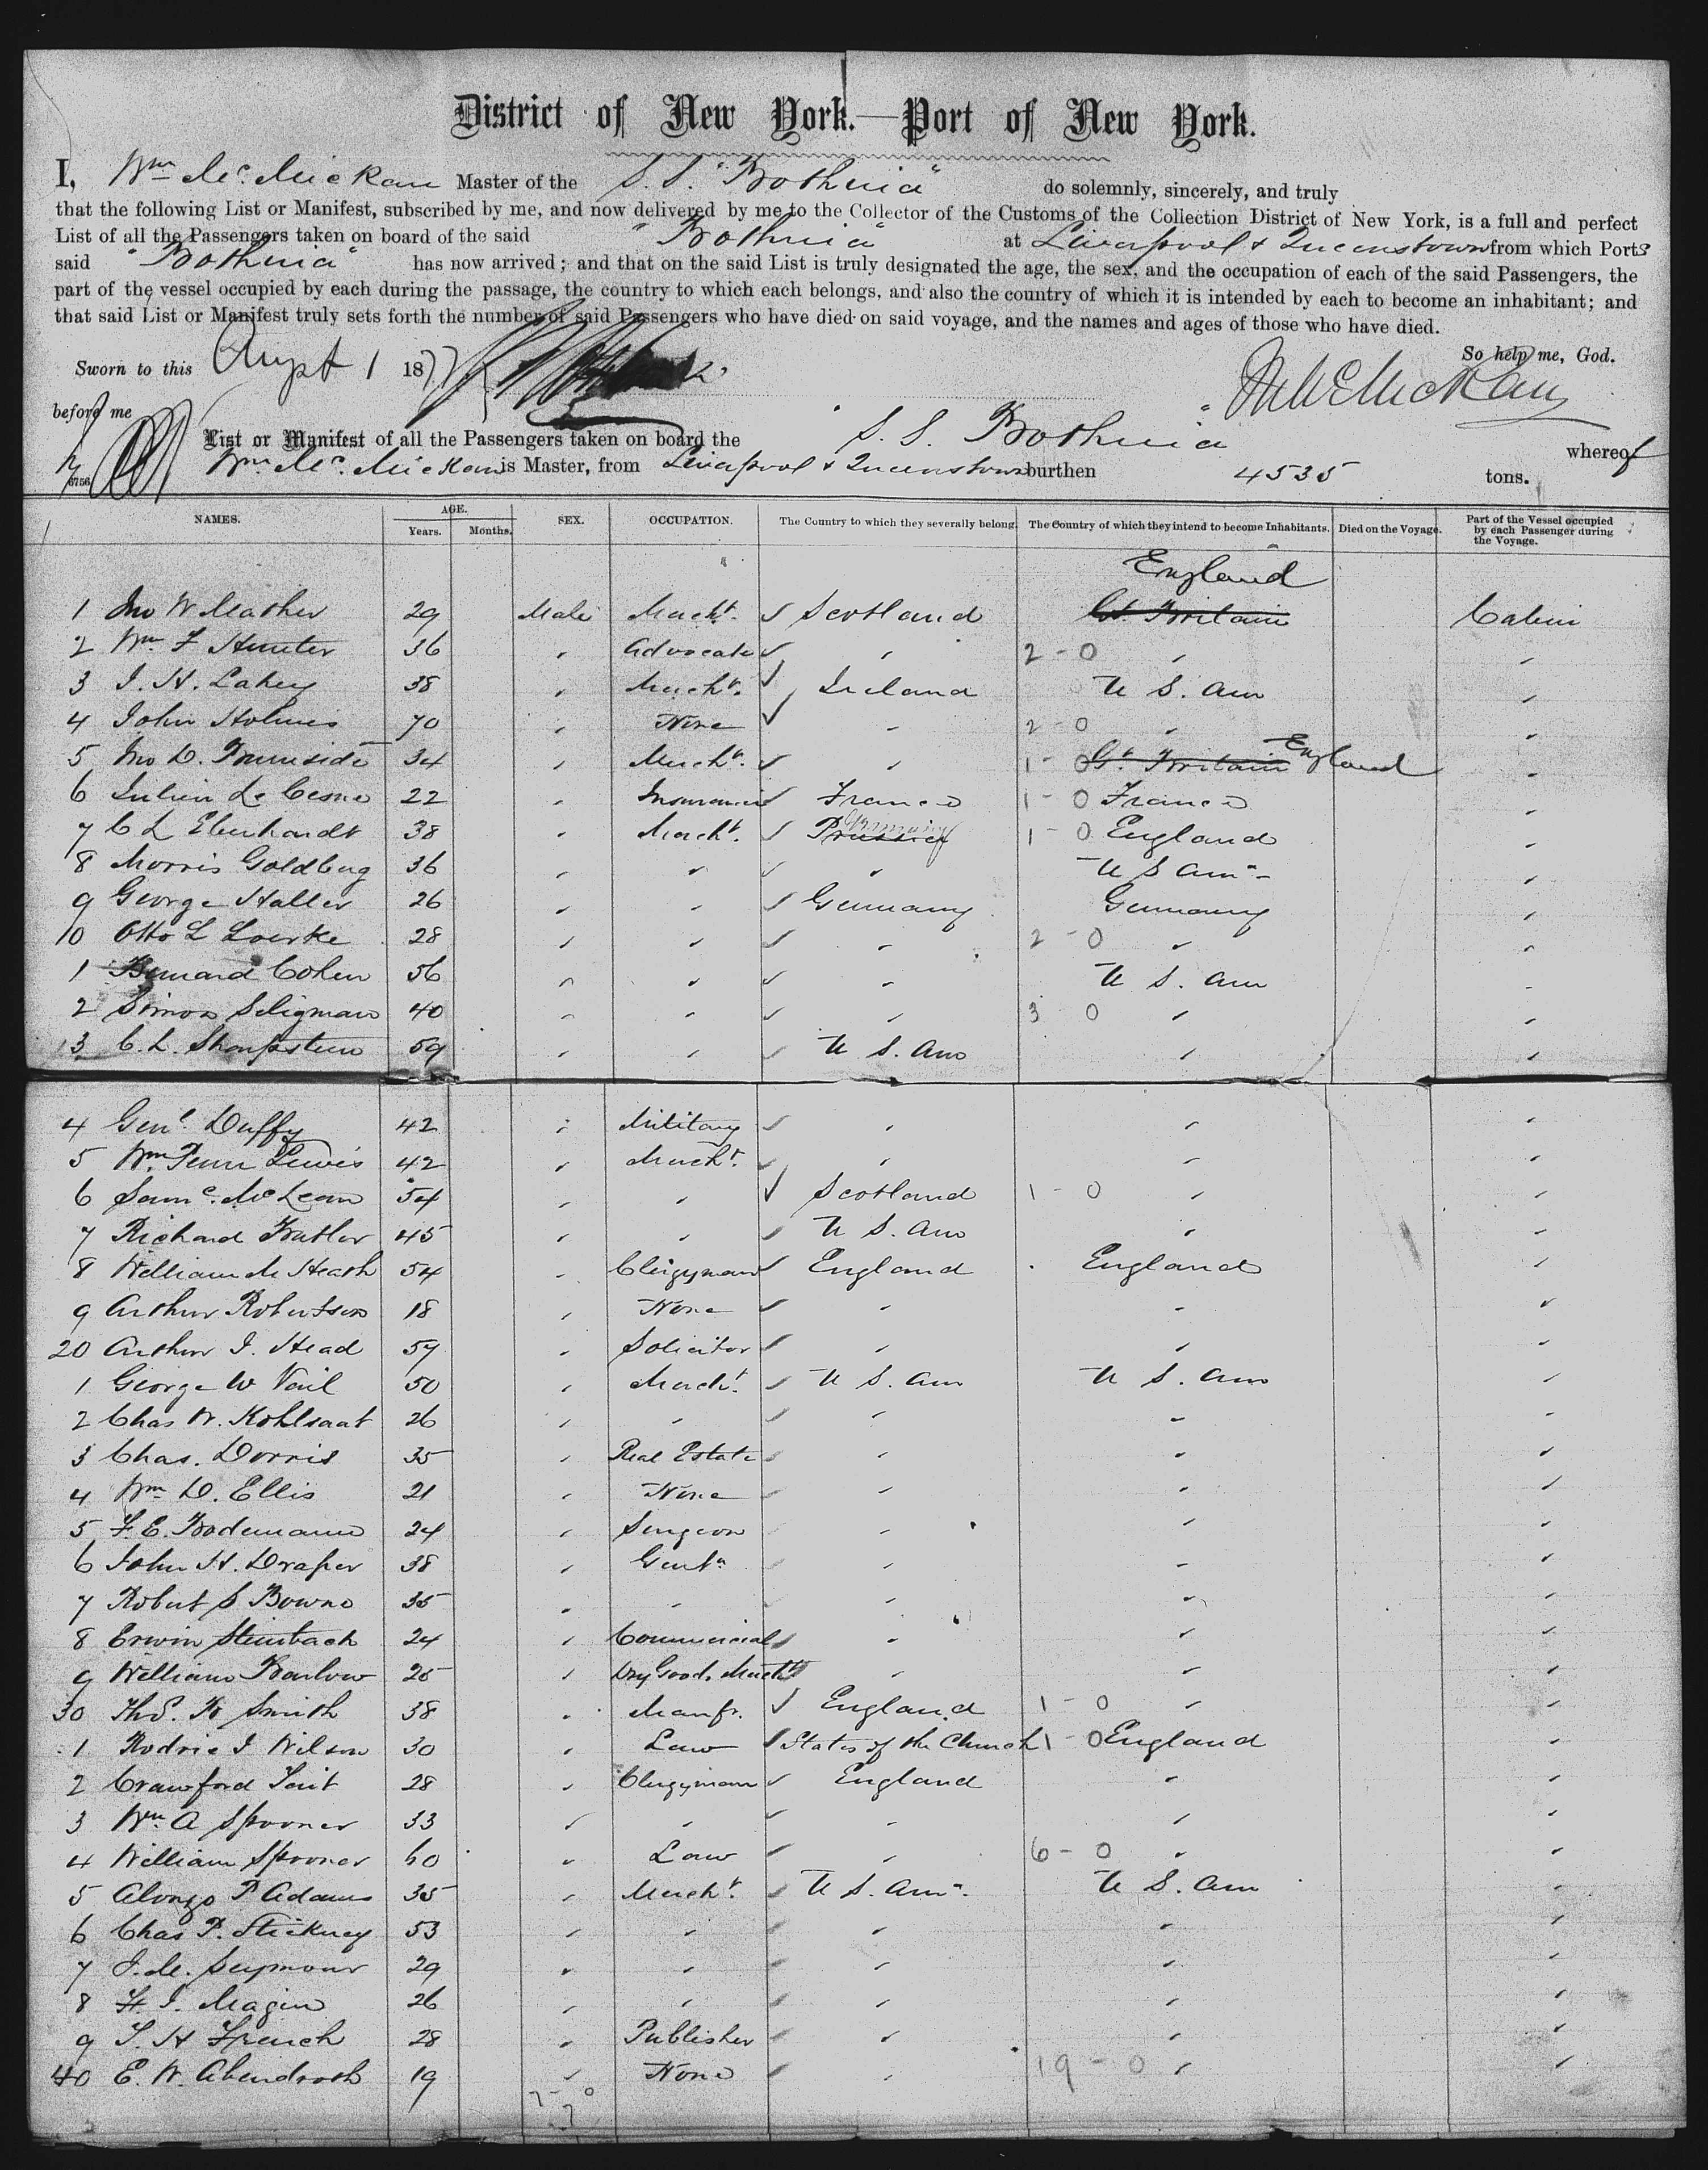 District of New York.—Port of New York.
I, Wm McMickan Master of the S.S. "Bothnia" do solemnly, sincerely, and truly
that the following List or Manifest, subscribed by me, and now delivered by me to the Collector of the Customs of the Collection District of New York, is a full and perfect
List of all the Passengers taken on board of the said "Bothnia" at Liverpool & Queenstown from which Ports
said "Bothnia" has now arrived; and that on the said List is truly designated the age, the sex, and the occupation of each of the said Passengers, the
part of the vessel occupied by each during the passage, the country to which each belongs, and also the country of which it is intended by each to become an inhabitant; and
that said List or Manifest truly sets forth the number of said Passengers who have died on said voyage, and the names and ages of those who have died.
So help me, God.
Sworn to this Augst 1 1877
W McMickan
before me
List or Manifest of all the Passengers taken on board the S.S. Bothnia whereof
Wm McMickan is Master, from Liverpool & Queenstown burthen 4535 tons.
NAMES. AGE. Years. Months. SEX. OCCUPATION. The Country to which they severally belong. The Country of which they intend to become Inhabitants. Died on the Voyage. Part of the Vessel occupied by each Passenger during the Voyage.
England
1 Jno W Mather 29 Male Mercht. ✓ Scotland Gt. Britain Cabin
2 Wm F Hunter 36 " Advocate ✓ " 2 - 0 " "
3 J. H. Lahey 38 " Mercht. ✓ Ireland U S. Am "
4 John Holmes 70 " None ✓ " 2 - 0 " "
5 Jno D. Burnside 34 " Mercht. ✓ " 1 - 0 Gt. Britain England "
6 Julien Le Cesne 22 " Insurance ✓ France 1 - 0 France "
7 C L Eberhardt 38 " Mercht. ✓ Prussia Germany 1 - 0 England "
8 Morris Goldberg 36 " " ✓ " U S Am "
9 George Haller 26 " " ✓ Germany Germany "
10 Otto L Loerke 28 " " ✓ " 2 - 0 " "
1 Bernard Cohen 56 " " ✓ " U S. Am "
2 Simon Seligman 40 " " ✓ " 3 0 " "
13 C. L. Sharpstein 59 " " ✓ U S. Am " "
4 Genl. Duffy 42 " Military ✓ " " "
5 Wm Penn Lewis 42 " Mercht. ✓ " " "
6 Saml. McLean 54 " " ✓ Scotland 1 - 0 " "
7 Richard Butler 45 " " ✓ U S. Am " "
8 William M Heath 54 " Clergyman ✓ England England "
9 Arthur Robertson 18 " None ✓ " " "
20 Arthur J. Head 59 " Solicitor ✓ " " "
1 George W Vail 50 " Mercht. ✓ U S. Am U S. Am "
2 Chas W. Kohlsaat 26 " " ✓ " " "
3 Chas. Dorris 35 " Real Estate ✓ " " "
4 Wm D. Ellis 21 " None ✓ " " "
5 F. E. Bodemann 24 " Surgeon ✓ " " "
6 John H. Draper 38 " Gentn ✓ " " "
7 Robert S Bowne 35 " " ✓ " " "
8 Erwin Steinbach 24 " Commercial ✓ " " "
9 William Barlow 25 " Dry Goods Mercht ✓ " " "
30 Smith 38 " Manfr. ✓ England 1 - 0 " "
1 Rodric J Wilson 30 " Law ✓ States of the Church 1 - 0 England "
2 Crawford Tait 28 " Clergyman ✓ England " "
3 Wm A Spooner 33 " " ✓ " " "
4 William Spooner 60 " Law ✓ " 6 - 0 " "
5 Alonzo P Adams 35 " Mercht. ✓ U S. Am. U S. Am "
6 Chas P. Stickney 53 " " ✓ " " "
7 J. M. Seymour 29 " " ✓ " " "
8 H. J. Magin 26 " " ✓ " " "
9 T. H French 28 " Publisher ✓ " " "
40 E. W. Abendroth 19 " None ✓ " 19 - 0 " "